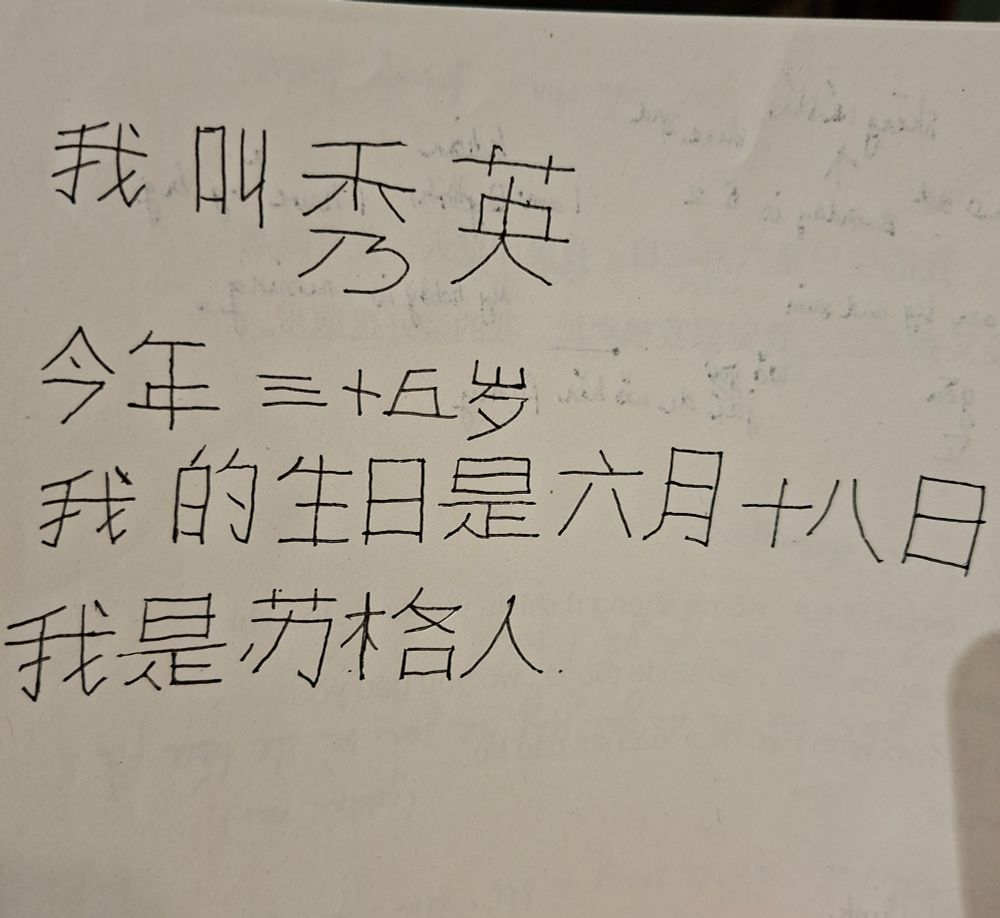 我叫秀英
今年三十五岁
我的生日是六月十八日
我是苏格人.